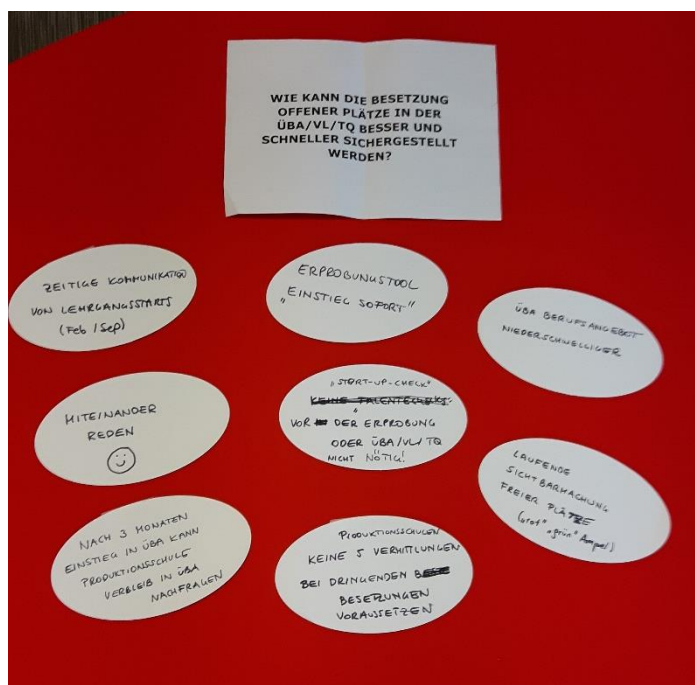 WIE KANN DIE BESETZUNG
OFFENER PLÄTZE IN DER
ÜBA/VL/TQ BESSER UND
SCHNELLER SICHERGESTELLT
WERDEN?
ZEITIGE KOMMUNIKATION
VON LEHRGANGSSTARTS
(Feb / Sep)
ERPROBUNGSTOOL
„EINSTIEG SOFORT"
ÜBA BERUFSANGEBOT
NIEDERSCHWELLIGER
MITEINANDER
REDEN
„START-UP-CHECK"
KEINE TALENTECHECKS
VOR DER ERPROBUNG
ODER ÜBA/VL/TQ
NICHT NÖTIG!
LAUFENDE
SICHTBARMACHUNG
FREIER PLÄTZE
("rot" "grün" Ampel)
NACH 3 MONATEN
EINSTIEG IN ÜBA KANN
PRODUKTIONSSCHULE
VERBLEIB IN ÜBA
NACHFRAGEN
PRODUKTIONSSCHULEN
KEINE 5 VERMITTLUNGEN
BEI DRINGENDEN
BESETZUNGEN
VORAUSSETZEN